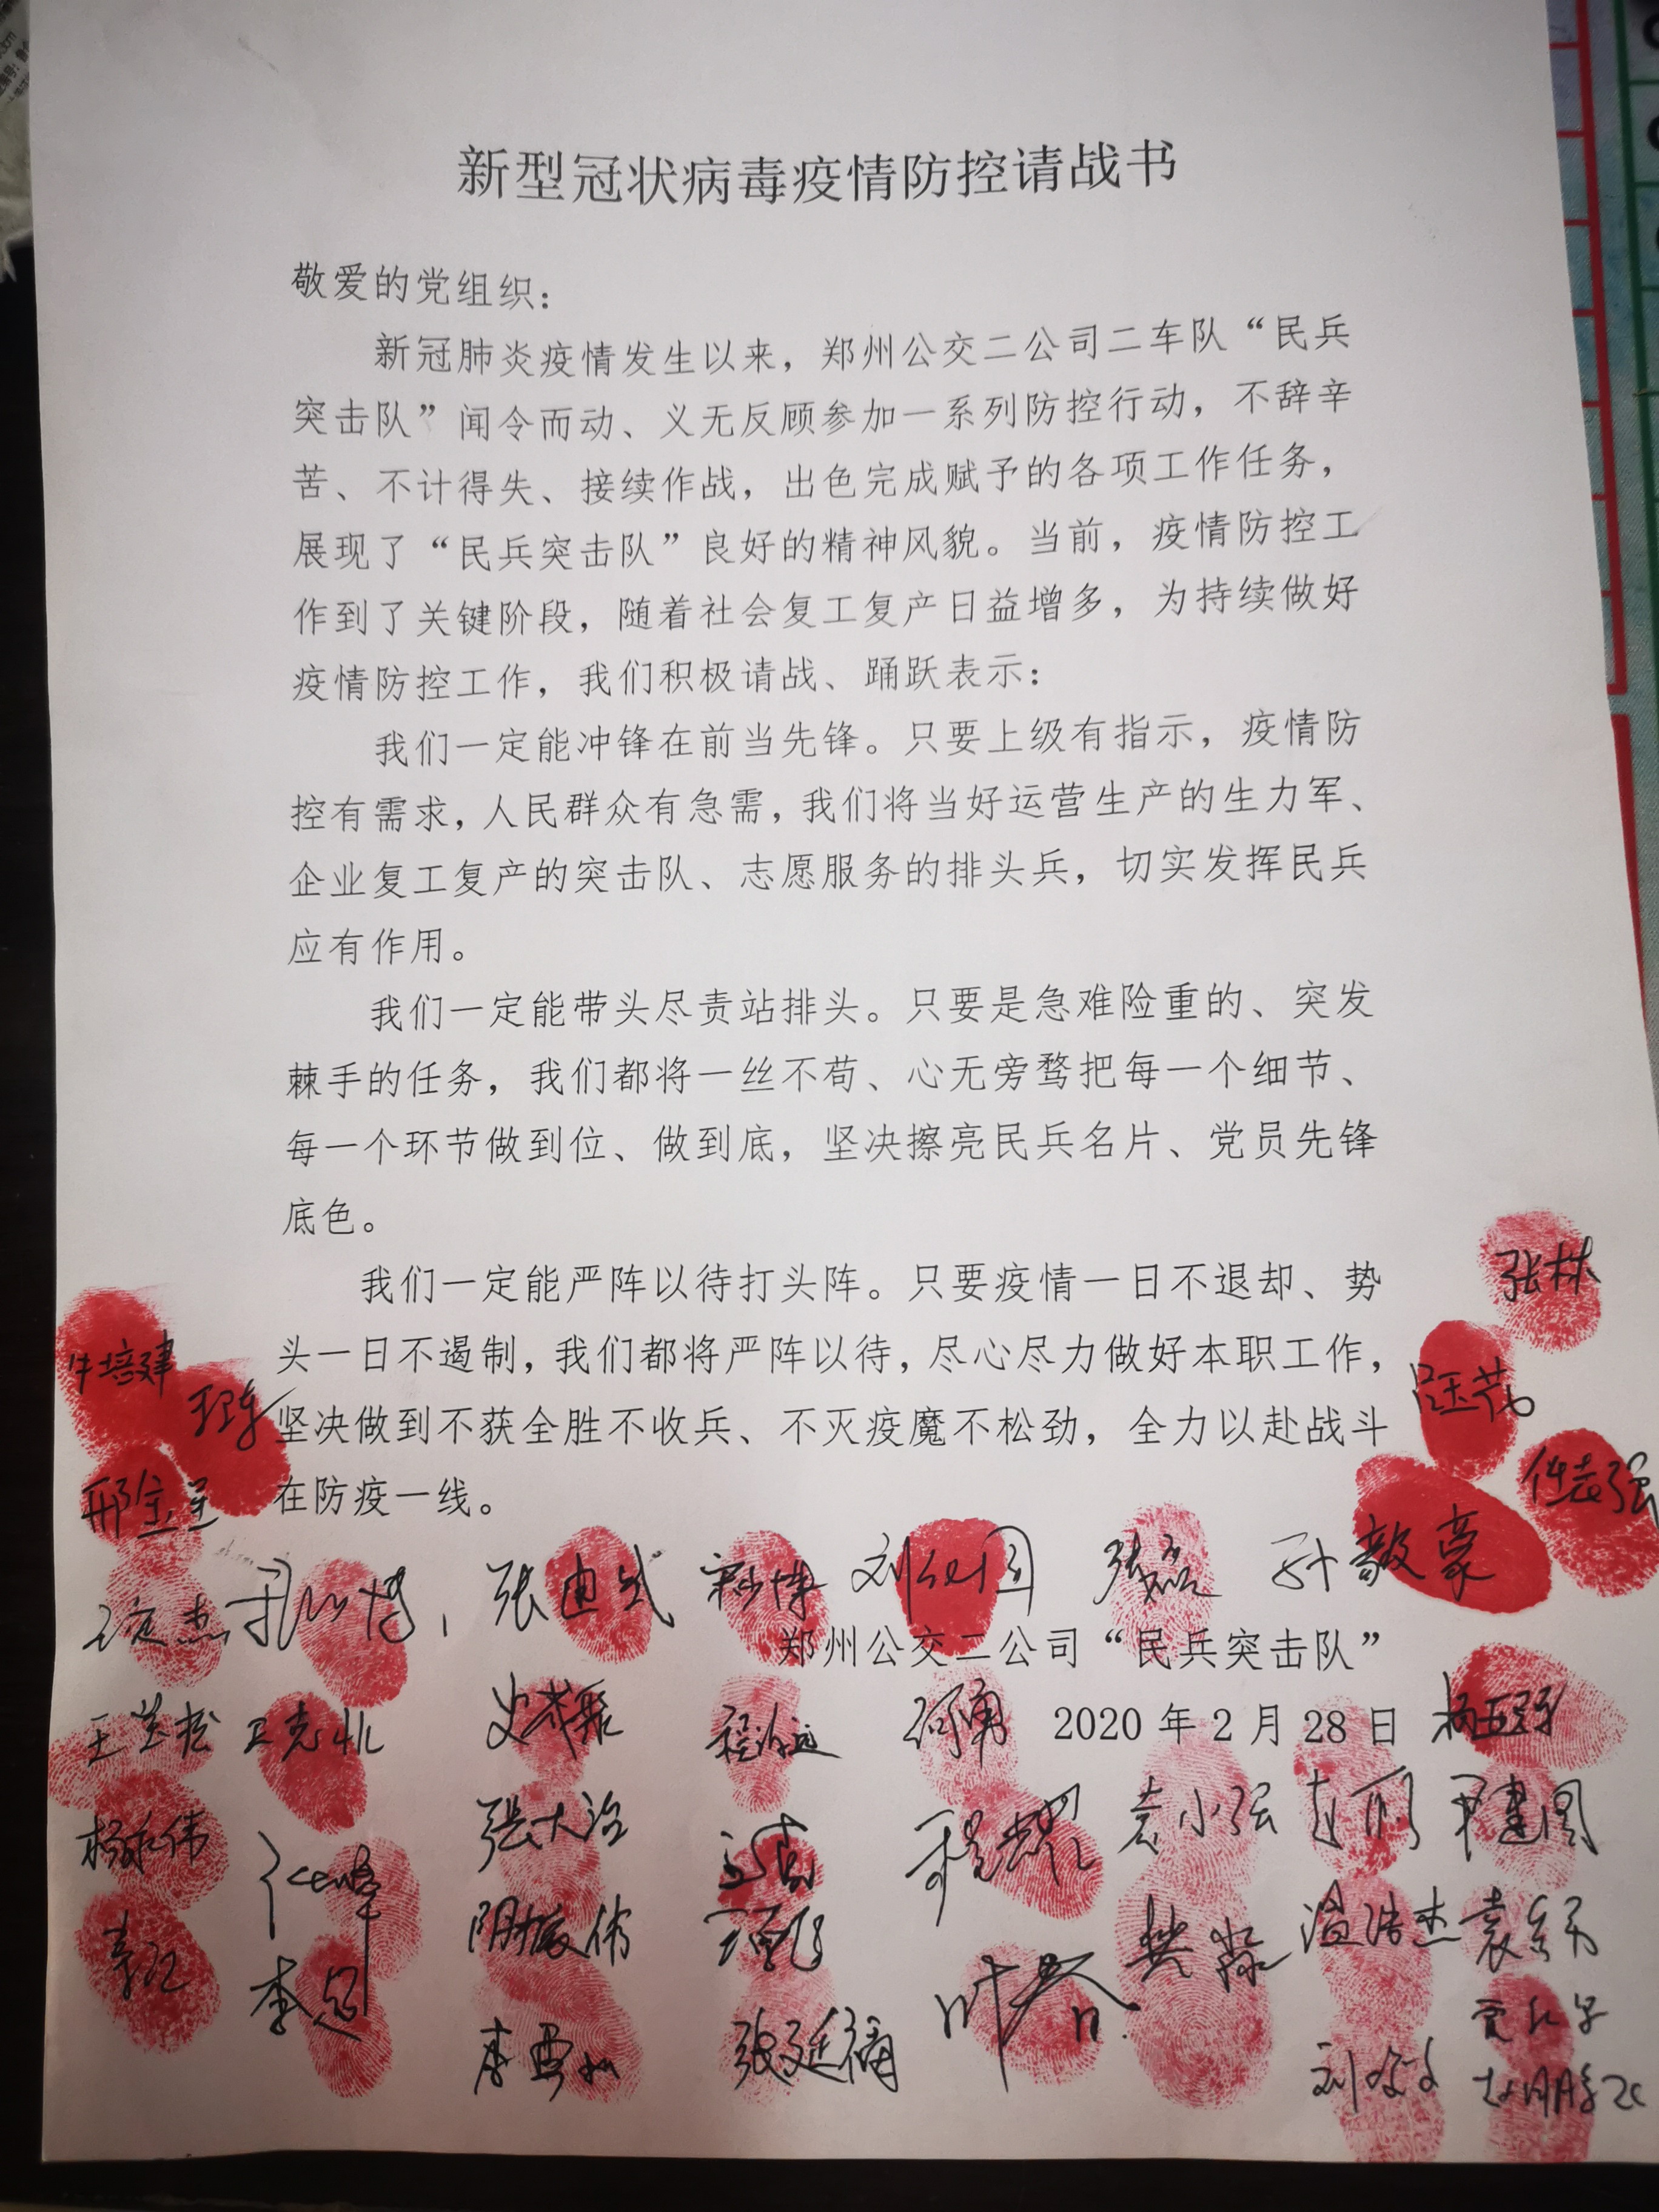 新型冠状病毒疫情防控请战书
敬爱的党组织：
新冠肺炎疫情发生以来，郑州公交二公司二车队“民兵
突击队”闻令而动、义无反顾参加一系列防控行动，不辞辛
苦、不计得失、接续作战，出色完成赋予的各项工作任务，
展现了“民兵突击队”良好的精神风貌。当前，疫情防控工
作到了关键阶段，随着社会复工复产日益增多，为持续做好
疫情防控工作，我们积极请战、踊跃表示：
我们一定能冲锋在前当先锋。只要上级有指示，疫情防
控有需求，人民群众有急需，我们将当好运营生产的生力军、
企业复工复产的突击队、志愿服务的排头兵，切实发挥民兵
应有作用。
我们一定能带头尽责站排头。只要是急难险重的、突发
棘手的任务，我们都将一丝不苟、心无旁骛把每一个细节、
每一个环节做到位、做到底，坚决擦亮民兵名片、党员先锋
底色。
我们一定能严阵以待打头阵。只要疫情一日不退却、势
头一日不遏制，我们都将严阵以待，尽心尽力做好本职工作，
坚决做到不获全胜不收兵、不灭疫魔不松劲，全力以赴战斗
在防疫一线。
张林
牛培建
孙毅豪
郑州公交二公司“民兵突击队”
2020年2月28日
张大治
袁小强
李超
张延福